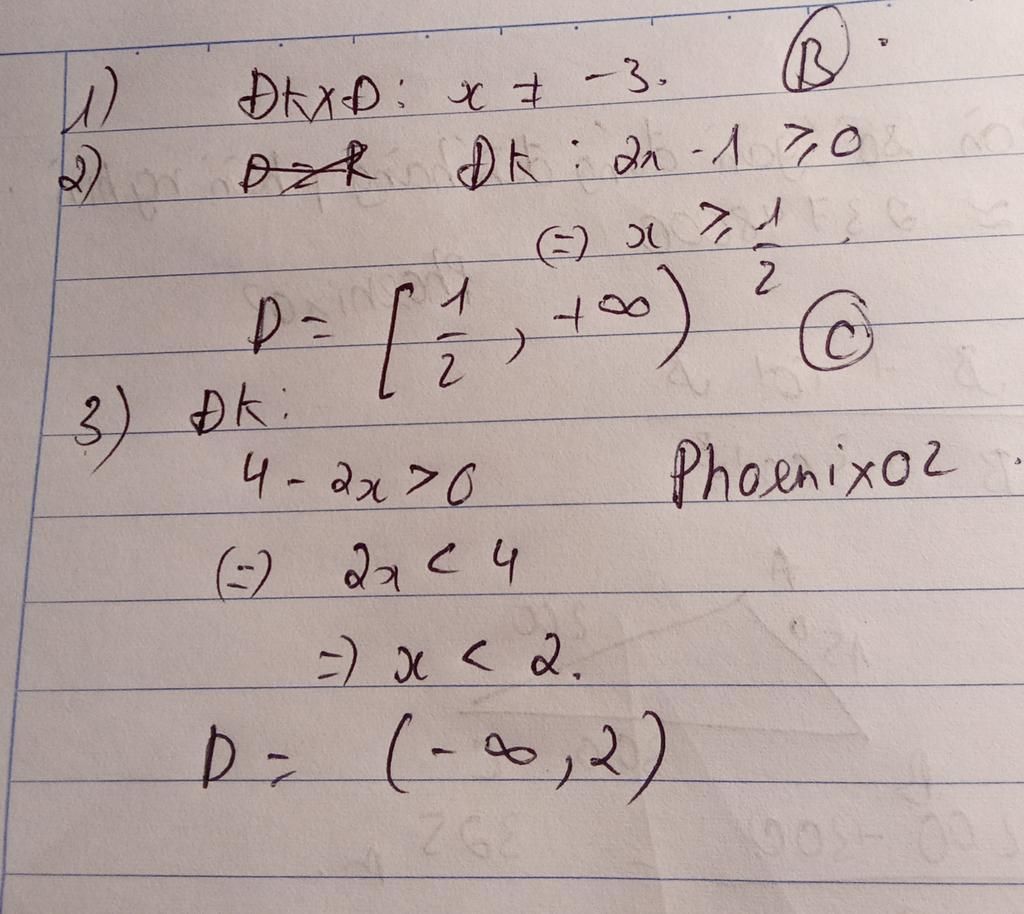 1) ĐKXĐ: x ≠ -3. B.
2) D = R ĐK: 2x - 1 ≥ 0
(=) x ≥ 1/2.
D = [1/2, +∞) C
3) ĐK:
4 - 2x > 0 Phoenix02
(=) 2x < 4
=) x < 2.
D = (-∞, 2)